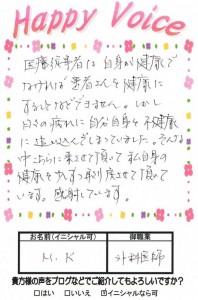 Happy Voice
医療従事者は自身が健康で
なければ患者さんを健康に
することなどできません。しかし
日々の疲れに自分自身を不健康
に追い込んでしまっていました。そんな
中こちらに来させて頂いて私自身の
健康を少しずつ取り戻させて頂いて
います。感謝しています。
お名前(イニシャル可) 御職業
M.K 外科医師
貴方様の声をブログなどでご紹介してもよろしいですか?
□はい □いいえ ☑イニシャルなら可